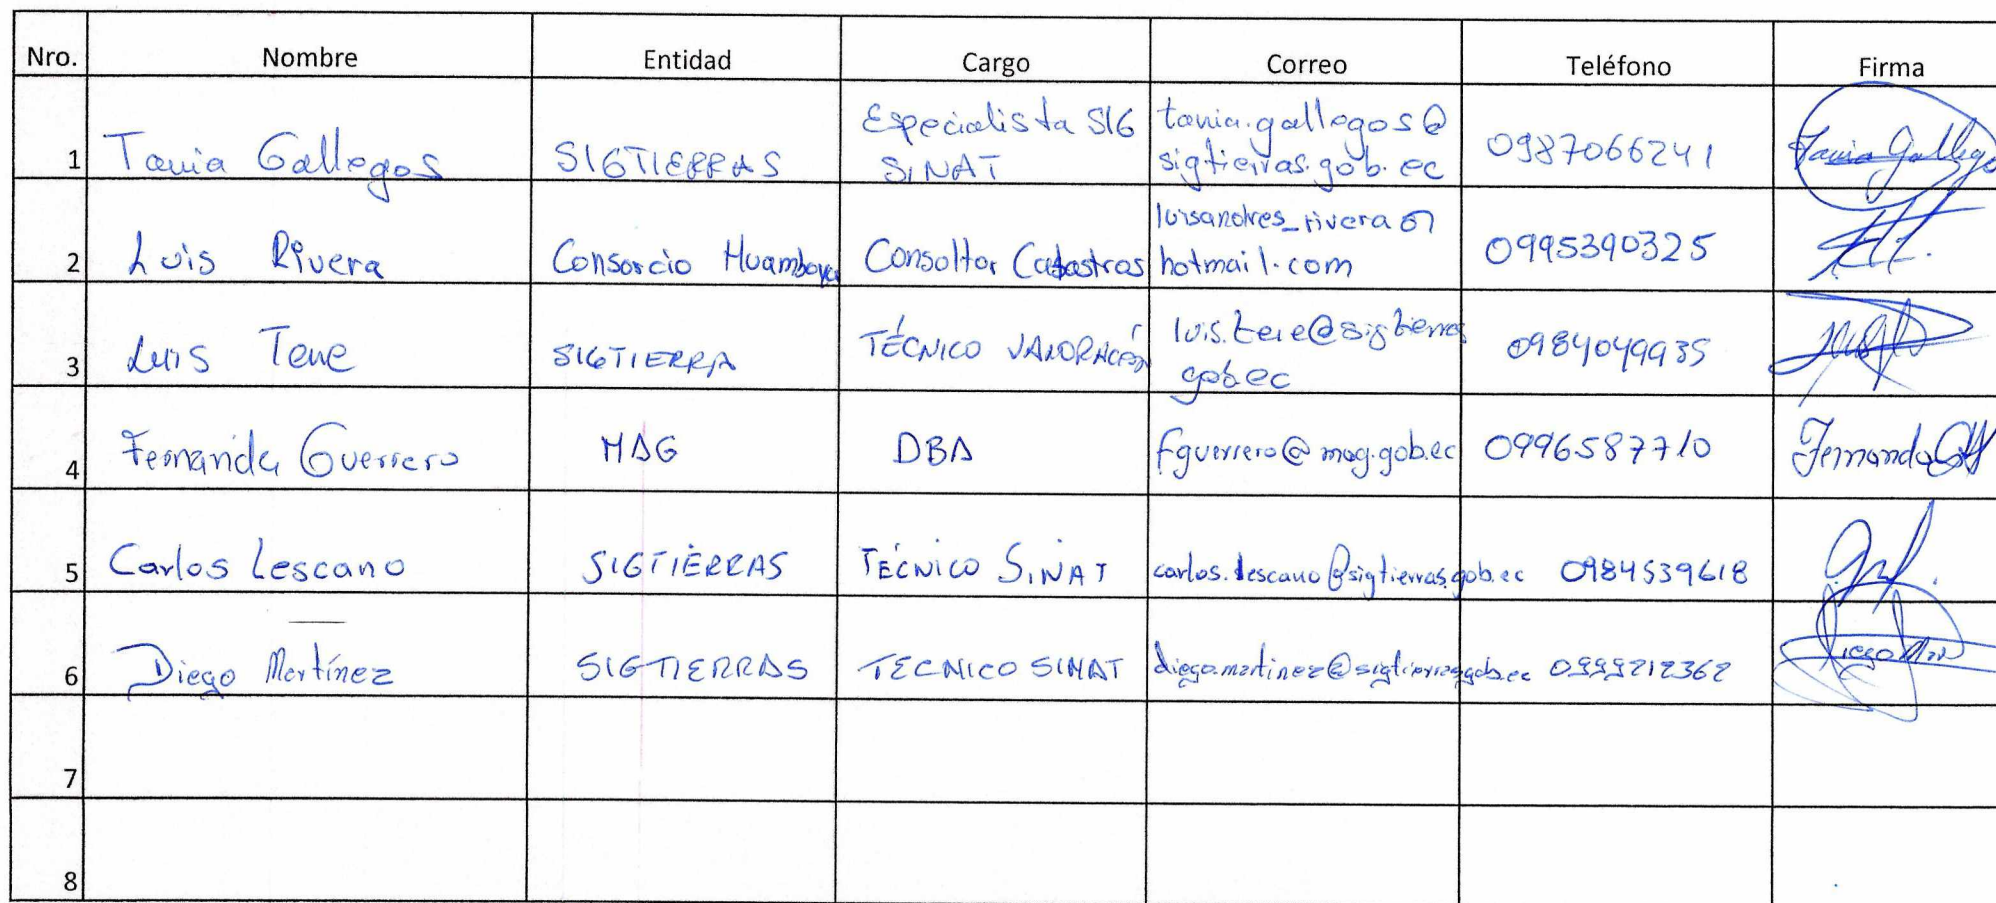 Nro. Nombre Entidad Cargo Correo Teléfono Firma
1 Tania Gallegos SIGTIERRAS Especialista SIG tania.gallegos@ 0987066241 Tania Gallegos
SINAT sigtierras.gob.ec
2 Luis Rivera Consorcio Huamboya Consoltor Catastros luisandres_rivera@ 0995390325
hotmail.com
3 Luis Tene SIGTIERRA TÉCNICO VALORACIÓN luis.tene@sigtierras 0984049935
gob.ec
4 Fernanda Guerrero MAG DBA fguerrero@mag.gob.ec 0996587710 Fernanda
5 Carlos Lescano SIGTIERRAS TÉCNICO SINAT carlos.lescano@sigtierras.gob.ec 0984539618
6 Diego Martínez SIGTIERRAS TECNICO SINAT diego.martinez@sigtierras.gob.ec 0999212362 Diego
7
8